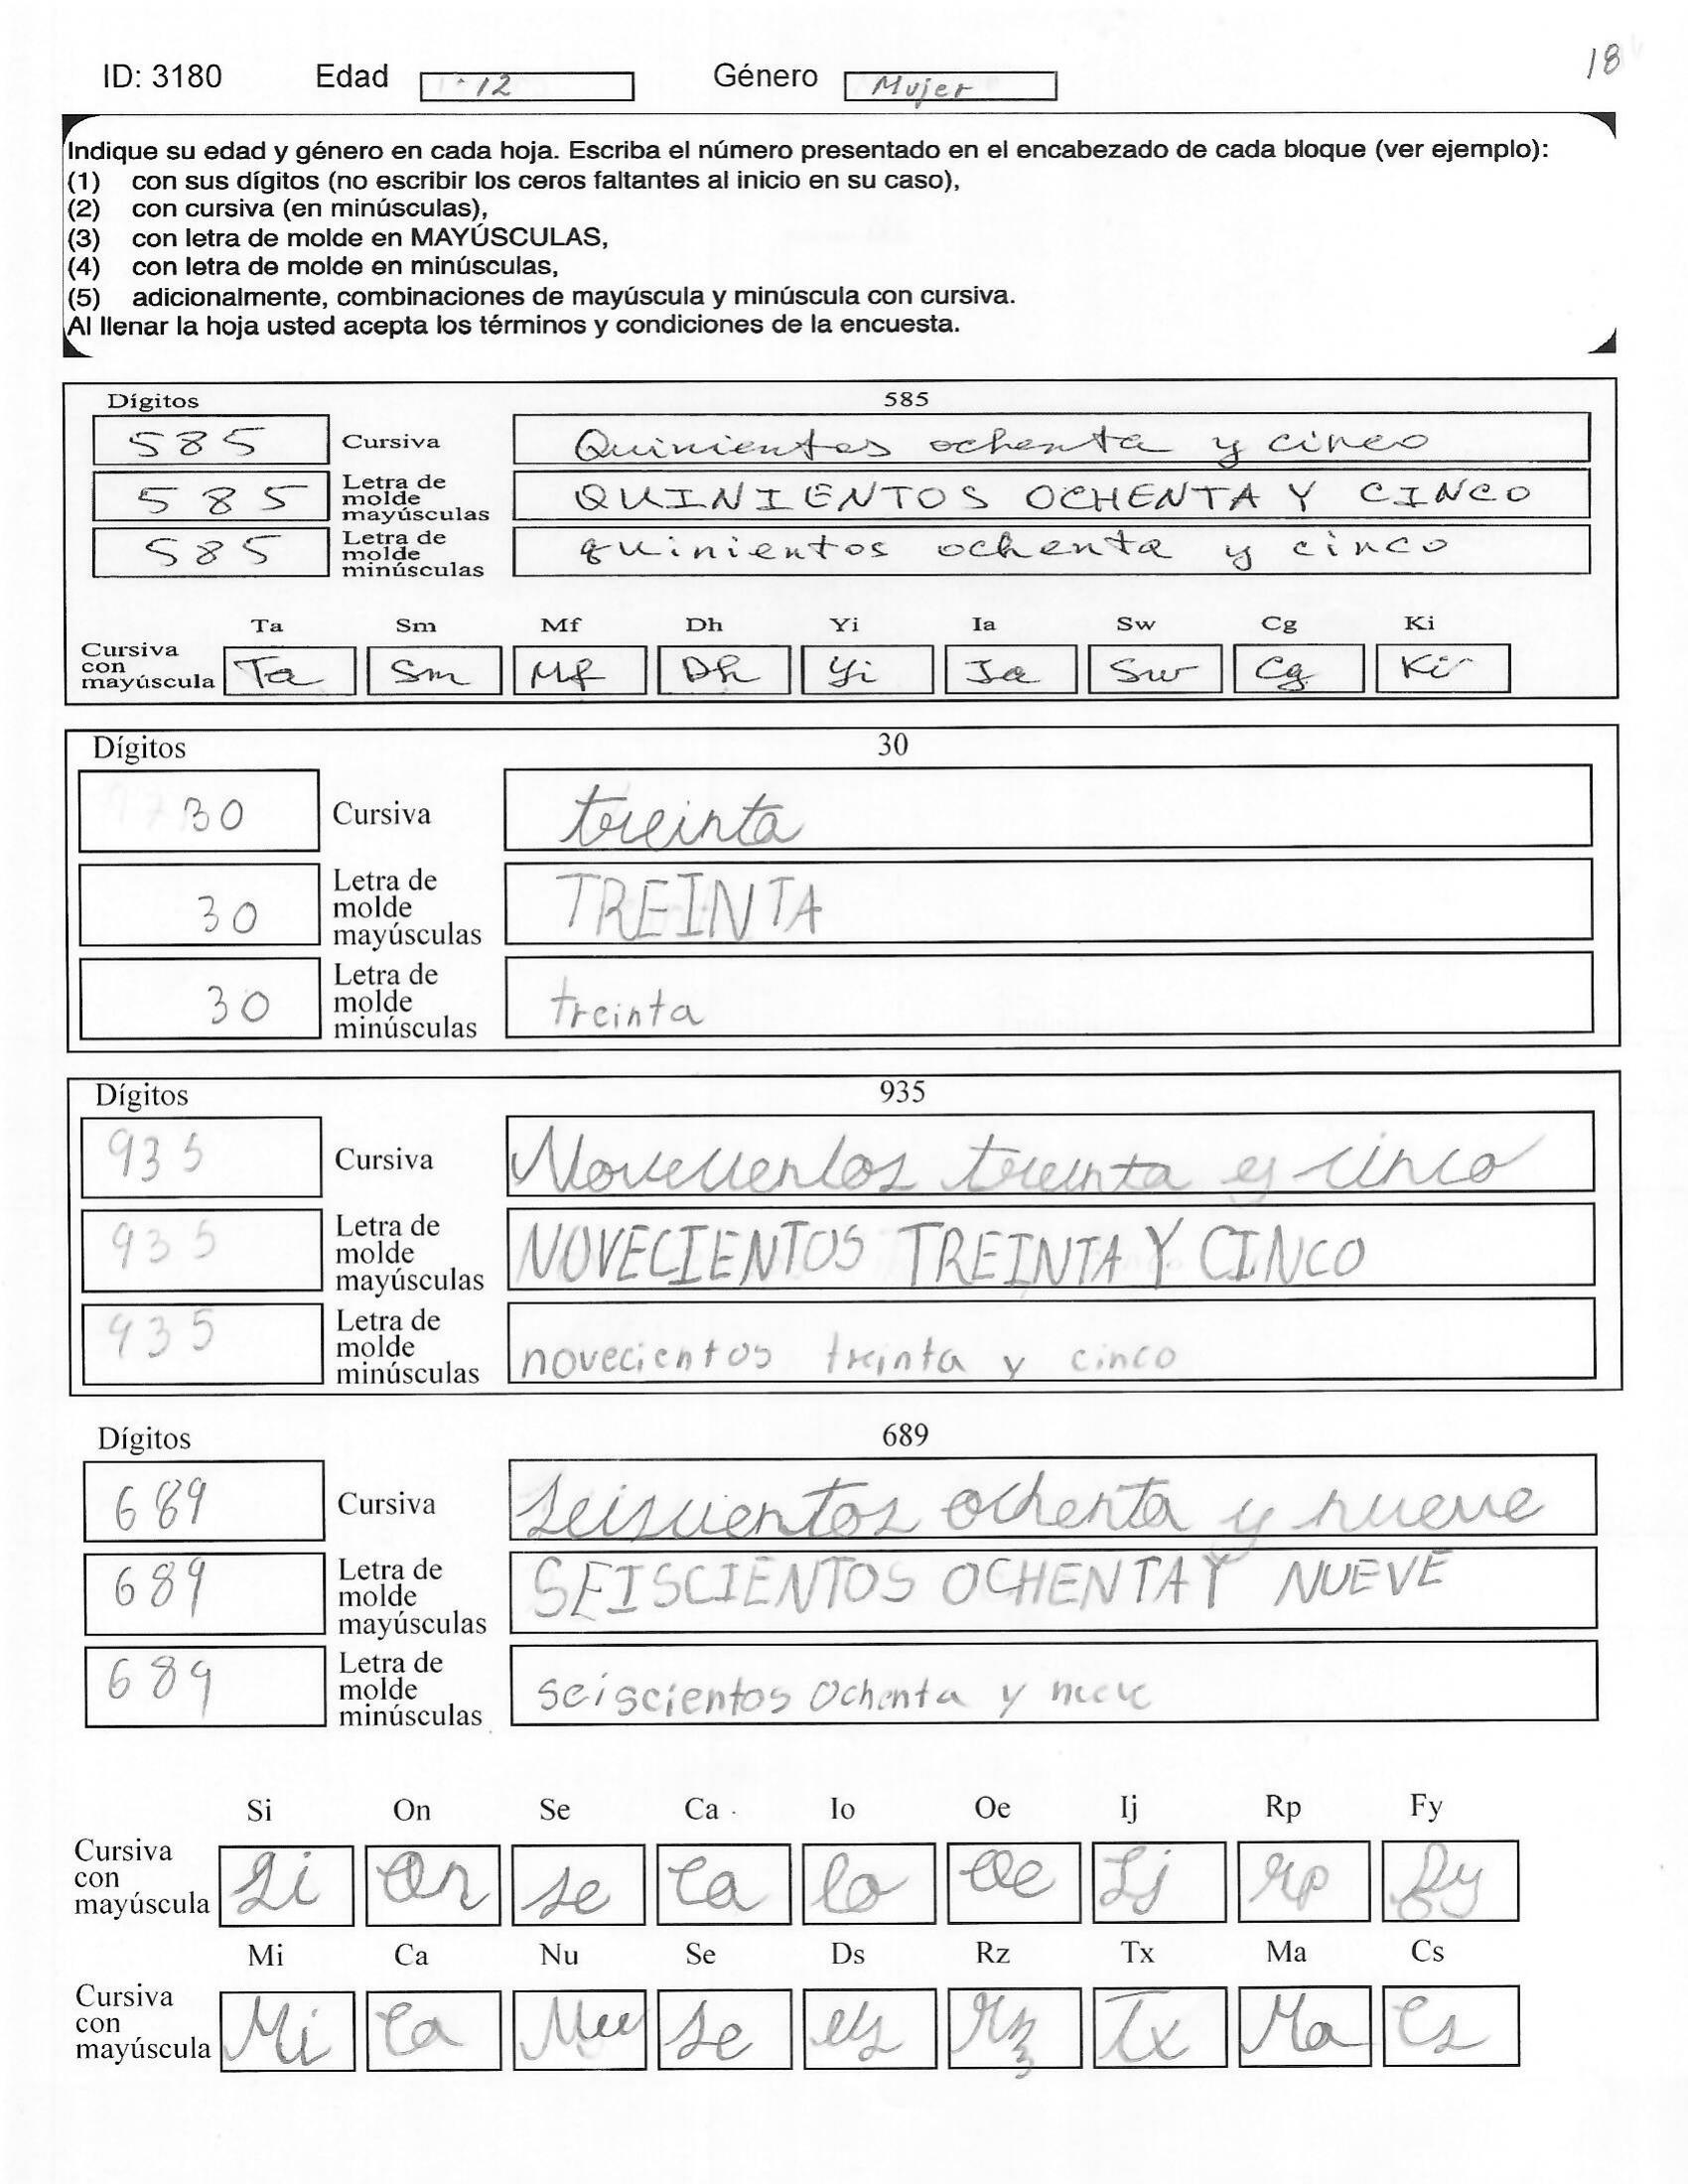 18
ID: 3180 Edad 12 Género Mujer
Indique su edad y género en cada hoja. Escriba el número presentado en el encabezado de cada bloque (ver ejemplo):
(1) con sus dígitos (no escribir los ceros faltantes al inicio en su caso),
(2) con cursiva (en minúsculas),
(3) con letra de molde en MAYÚSCULAS,
(4) con letra de molde en minúsculas,
(5) adicionalmente, combinaciones de mayúscula y minúscula con cursiva.
Al llenar la hoja usted acepta los términos y condiciones de la encuesta.
Dígitos 585
585 Cursiva Quinientos ochenta y cinco
585 Letra de molde mayúsculas QUINIENTOS OCHENTA Y CINCO
585 Letra de molde minúsculas quinientos ochenta y cinco
Ta Sm Mf Dh Yi Ia Sw Cg Ki
Cursiva con mayúscula Ta Sm Mf Dh Yi Ia Sw Cg Ki
Dígitos 30
30 Cursiva treinta
30 Letra de molde mayúsculas TREINTA
30 Letra de molde minúsculas treinta
Dígitos 935
935 Cursiva Novecientos treinta y cinco
935 Letra de molde mayúsculas NOVECIENTOS TREINTA Y CINCO
935 Letra de molde minúsculas novecientos treinta y cinco
Dígitos 689
689 Cursiva seiscientos ochenta y nueve
689 Letra de molde mayúsculas SEISCIENTOS OCHENTA Y NUEVE
689 Letra de molde minúsculas seiscientos ochenta y nueve
Si On Se Ca Io Oe Ij Rp Fy
Cursiva con mayúscula Si On Se Ca lo Oe Ij Rp Fy
Mi Ca Nu Se Ds Rz Tx Ma Cs
Cursiva con mayúscula Mi Ca Nu Se Ds Rz Tx Ma Cs